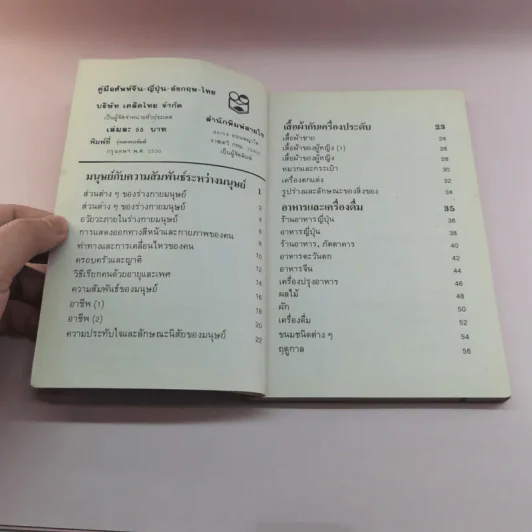 คู่มือศัพท์จีน-ญี่ปุ่น-อังกฤษ-ไทย
บริษัท เคล็ดไทย จำกัด
เป็นผู้จัดจำหน่ายทั่วประเทศ
เล่มละ 55 บาท
พิมพ์ที่
กรุงเทพฯ พ.ศ. 2530
สำนักพิมพ์สายใจ
เป็นผู้จัดพิมพ์
มนุษย์กับความสัมพันธ์ระหว่างมนุษย์ 1
ส่วนต่าง ๆ ของร่างกายมนุษย์ 2
ส่วนต่าง ๆ ของร่างกายมนุษย์ 4
อวัยวะภายในร่างกายมนุษย์ 6
การแสดงออกทางสีหน้าและกายภาพของคน 8
ท่าทางและการเคลื่อนไหวของคน 10
ครอบครัวและญาติ 12
วิธีเรียกคนด้วยอายุและเพศ 14
ความสัมพันธ์ของมนุษย์ 16
อาชีพ (1) 18
อาชีพ (2) 20
ความประทับใจและลักษณะนิสัยของมนุษย์ 22
เสื้อผ้ากับเครื่องประดับ 23
เสื้อผ้าชาย 24
เสื้อผ้าของผู้หญิง (1) 26
เสื้อผ้าของผู้หญิง 28
หมวกและกระเป๋า 30
เครื่องตกแต่ง 32
รูปร่างและลักษณะของสิ่งของ 34
อาหารและเครื่องดื่ม 35
ร้านอาหารญี่ปุ่น 36
อาหารญี่ปุ่น 38
ร้านอาหาร, ภัตตาคาร 40
อาหารตะวันตก 42
อาหารจีน 44
เครื่องปรุงอาหาร 46
ผลไม้ 48
ผัก 50
เครื่องดื่ม 52
ขนมชนิดต่าง ๆ 54
ฤดูกาล 56